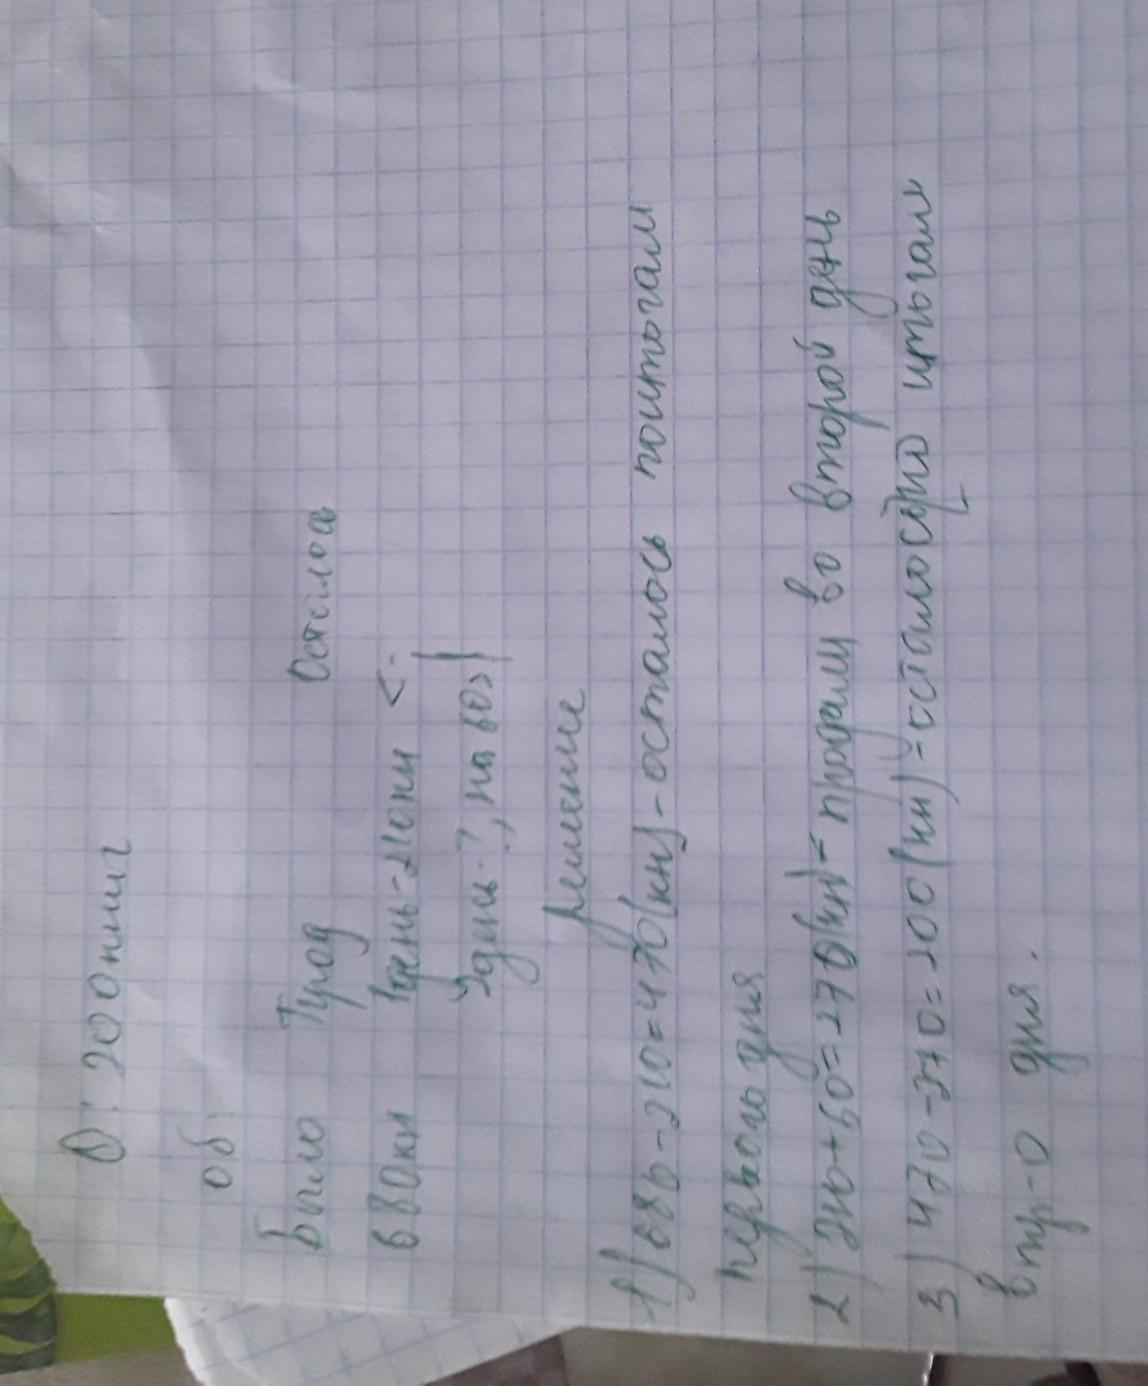 О: 200 книг
об:
Было Прод Осталос
680кн 1день-210кн <-
2день-?, на 60>
решение
1) 680-210=470(кн)-осталось поитогам
первого дня
2) 210+60=270(кн)-продали во второй день
3) 470-270=200(кн)-осталось по итогам
втр-о дня.